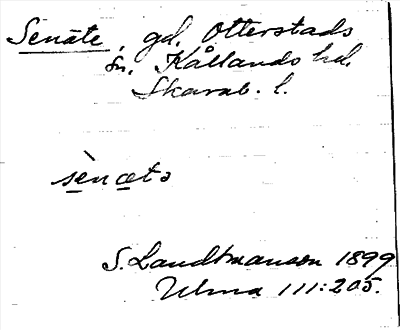 Senäte, gd, Otterstads
sn, Kållands hd,
Skarab. l.
sènætə
S. Landtmanson 1899
Ulma 111:205.